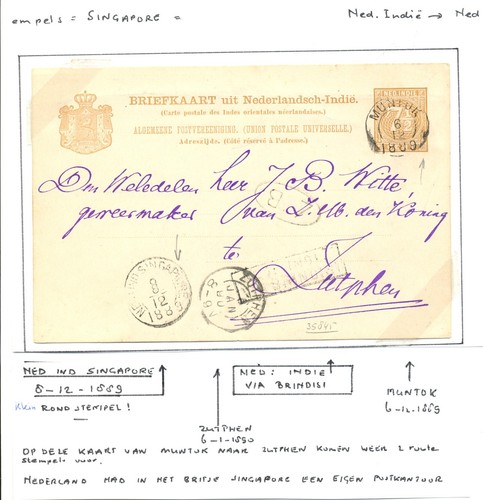 empels = SINGAPORE =
Ned. Indië → Ned
BRIEFKAART uit Nederlandsch-Indië.
(Carte postale des Indes orientales néerlandaises.)
ALGEMEENE POSTVEREENIGING. (UNION POSTALE UNIVERSELLE.)
Adreszijde. (Côté réservé à l'adresse.)
NED. INDIE
MUNTOK
6
12
1889
Den Weledelen heer J. B. Witte,
geweermaker van Z. M. den Koning
te
Zutphen
NED. IND SINGAPORE
8
12
1889
ZUTPHEN
6 JAN
35845
NED IND SINGAPORE
8-12-1889
Klein RONDSTEMPEL!
NED: INDIE
VIA BRINDISI
MUNTOK
6-12-1889
ZUTPHEN
6-1-1890
OP DEZE KAART VAN MUNTOK NAAR ZUTPHEN KOMEN WEER 2 route
stempels voor.
NEDERLAND HAD IN HET BRITSE SINGAPORE EEN EIGEN POSTKANTOOR